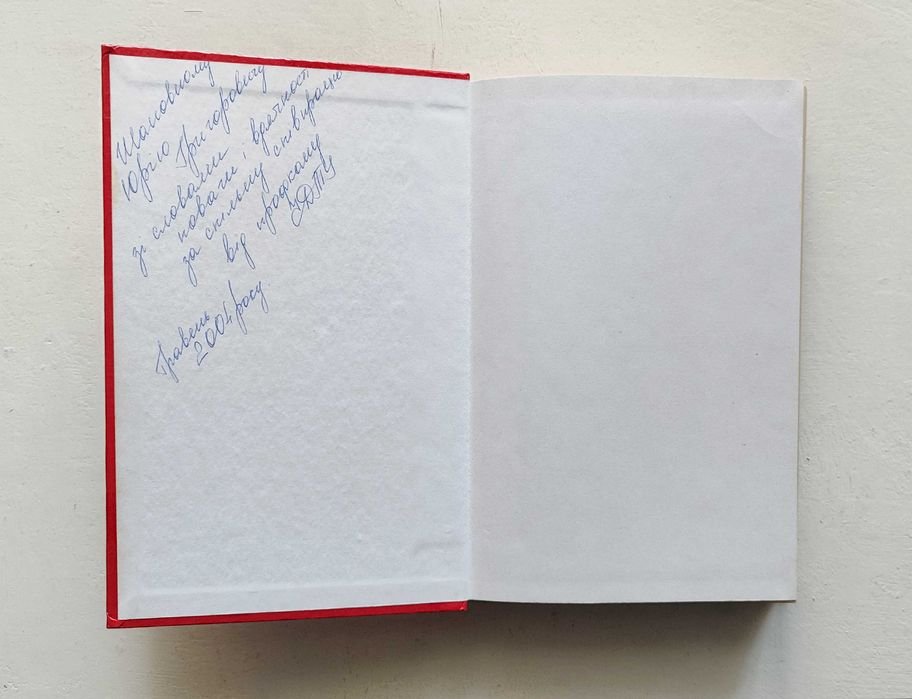 Шановному
Юрію Григоровичу
зі словами
поваги, вдячності
за спільну співпрацю
від профкому
УДТУ
Травень
2004 року.